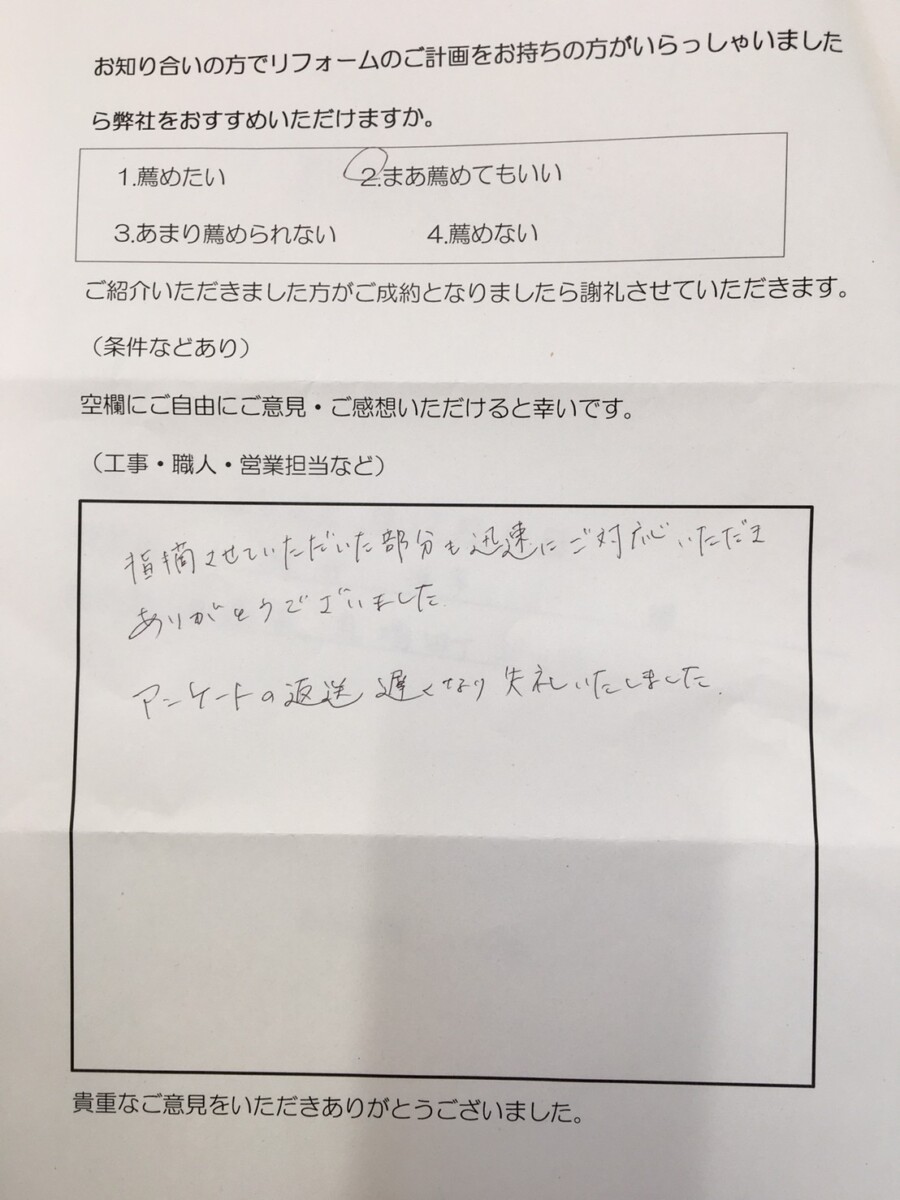 お知り合いの方でリフォームのご計画をお持ちの方がいらっしゃいました
ら弊社をおすすめいただけますか。
1.薦めたい 2.まあ薦めてもいい
3.あまり薦められない 4.薦めない
ご紹介いただきました方がご成約となりましたら謝礼させていただきます。
（条件などあり）
空欄にご自由にご意見・ご感想いただけると幸いです。
（工事・職人・営業担当など）
指摘させていただいた部分も迅速にご対応いただき
ありがとうございました.
アンケートの返送遅くなり失礼いたしました.
貴重なご意見をいただきありがとうございました。